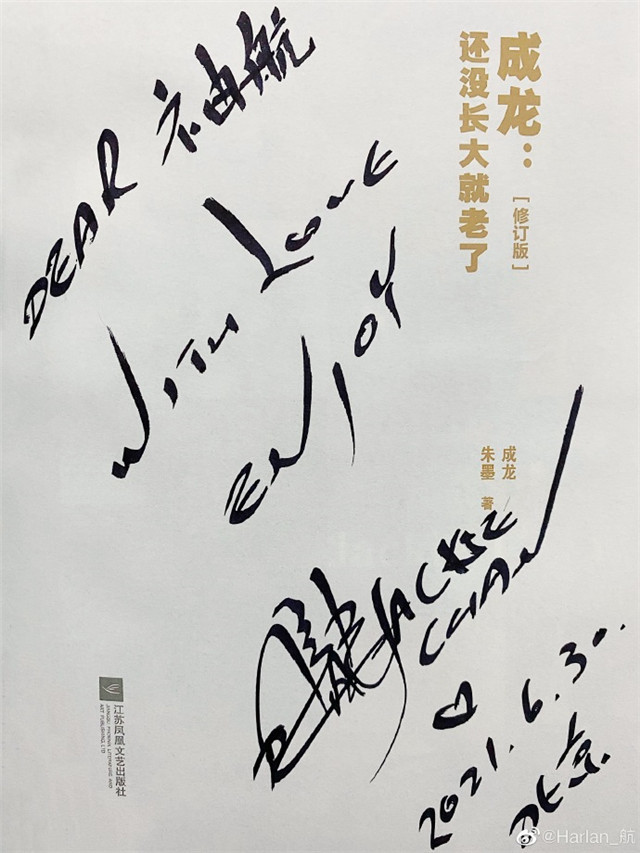 成龙：
还没长大就老了
［修订版］
DEAR 袖航
WITH LOVE
ENJOY
成龙
朱墨 著
成龍 JACKIE
CHAN
2021.6.30.
北京
江苏凤凰文艺出版社
JIANGSU PHOENIX LITERATURE AND
ART PUBLISHING, LTD
@Harlan_航